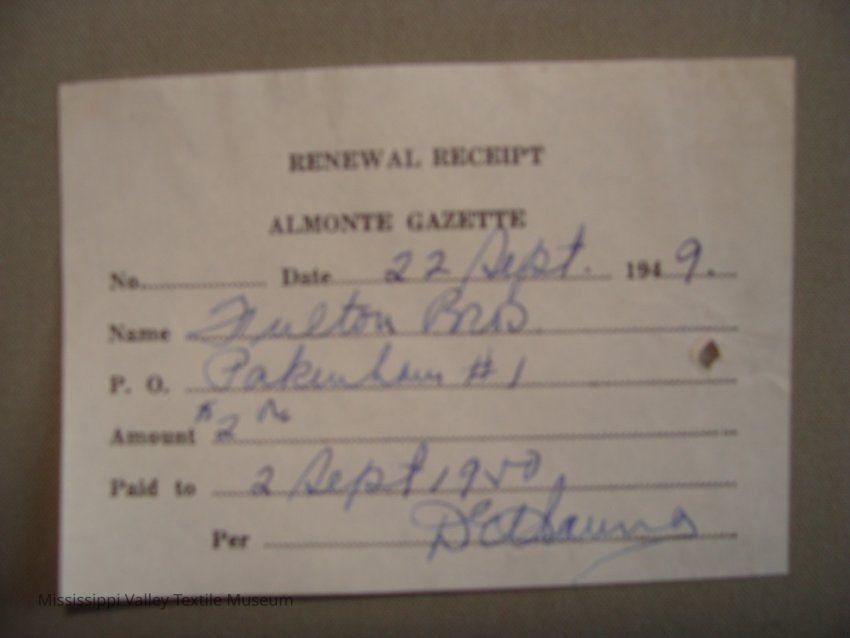 RENEWAL RECEIPT
ALMONTE GAZETTE
No. Date 22 Sept. 1949.
Name Fulton Bros
P. O. Pakenham #1
Amount $2
Paid to 2 Sept 1950
Per
Mississippi Valley Textile Museum